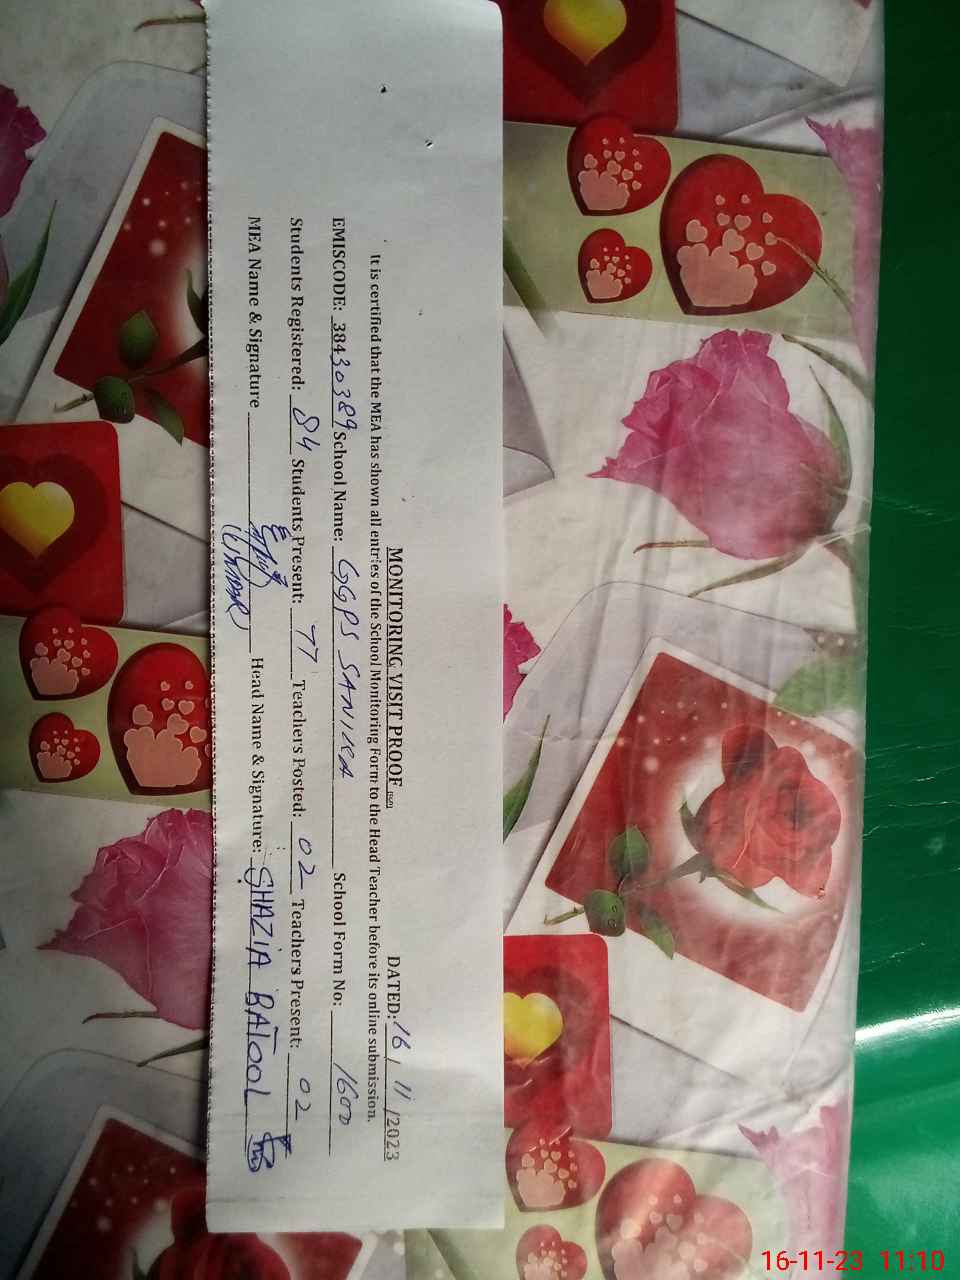 MONITORING VISIT PROOF DATED: 16 / 11 /2023
It is certified that the MEA has shown all entries of the School Monitoring Form to the Head Teacher before its online submission.
EMISCODE: 38430389 School Name: GGPS SANIKA School Form No: 1600
Students Registered: 84 Students Present: 77 Teachers Posted: 02 Teachers Present: 02
MEA Name & Signature Head Name & Signature: SHAZIA BATOOL
16-11-23 11:10